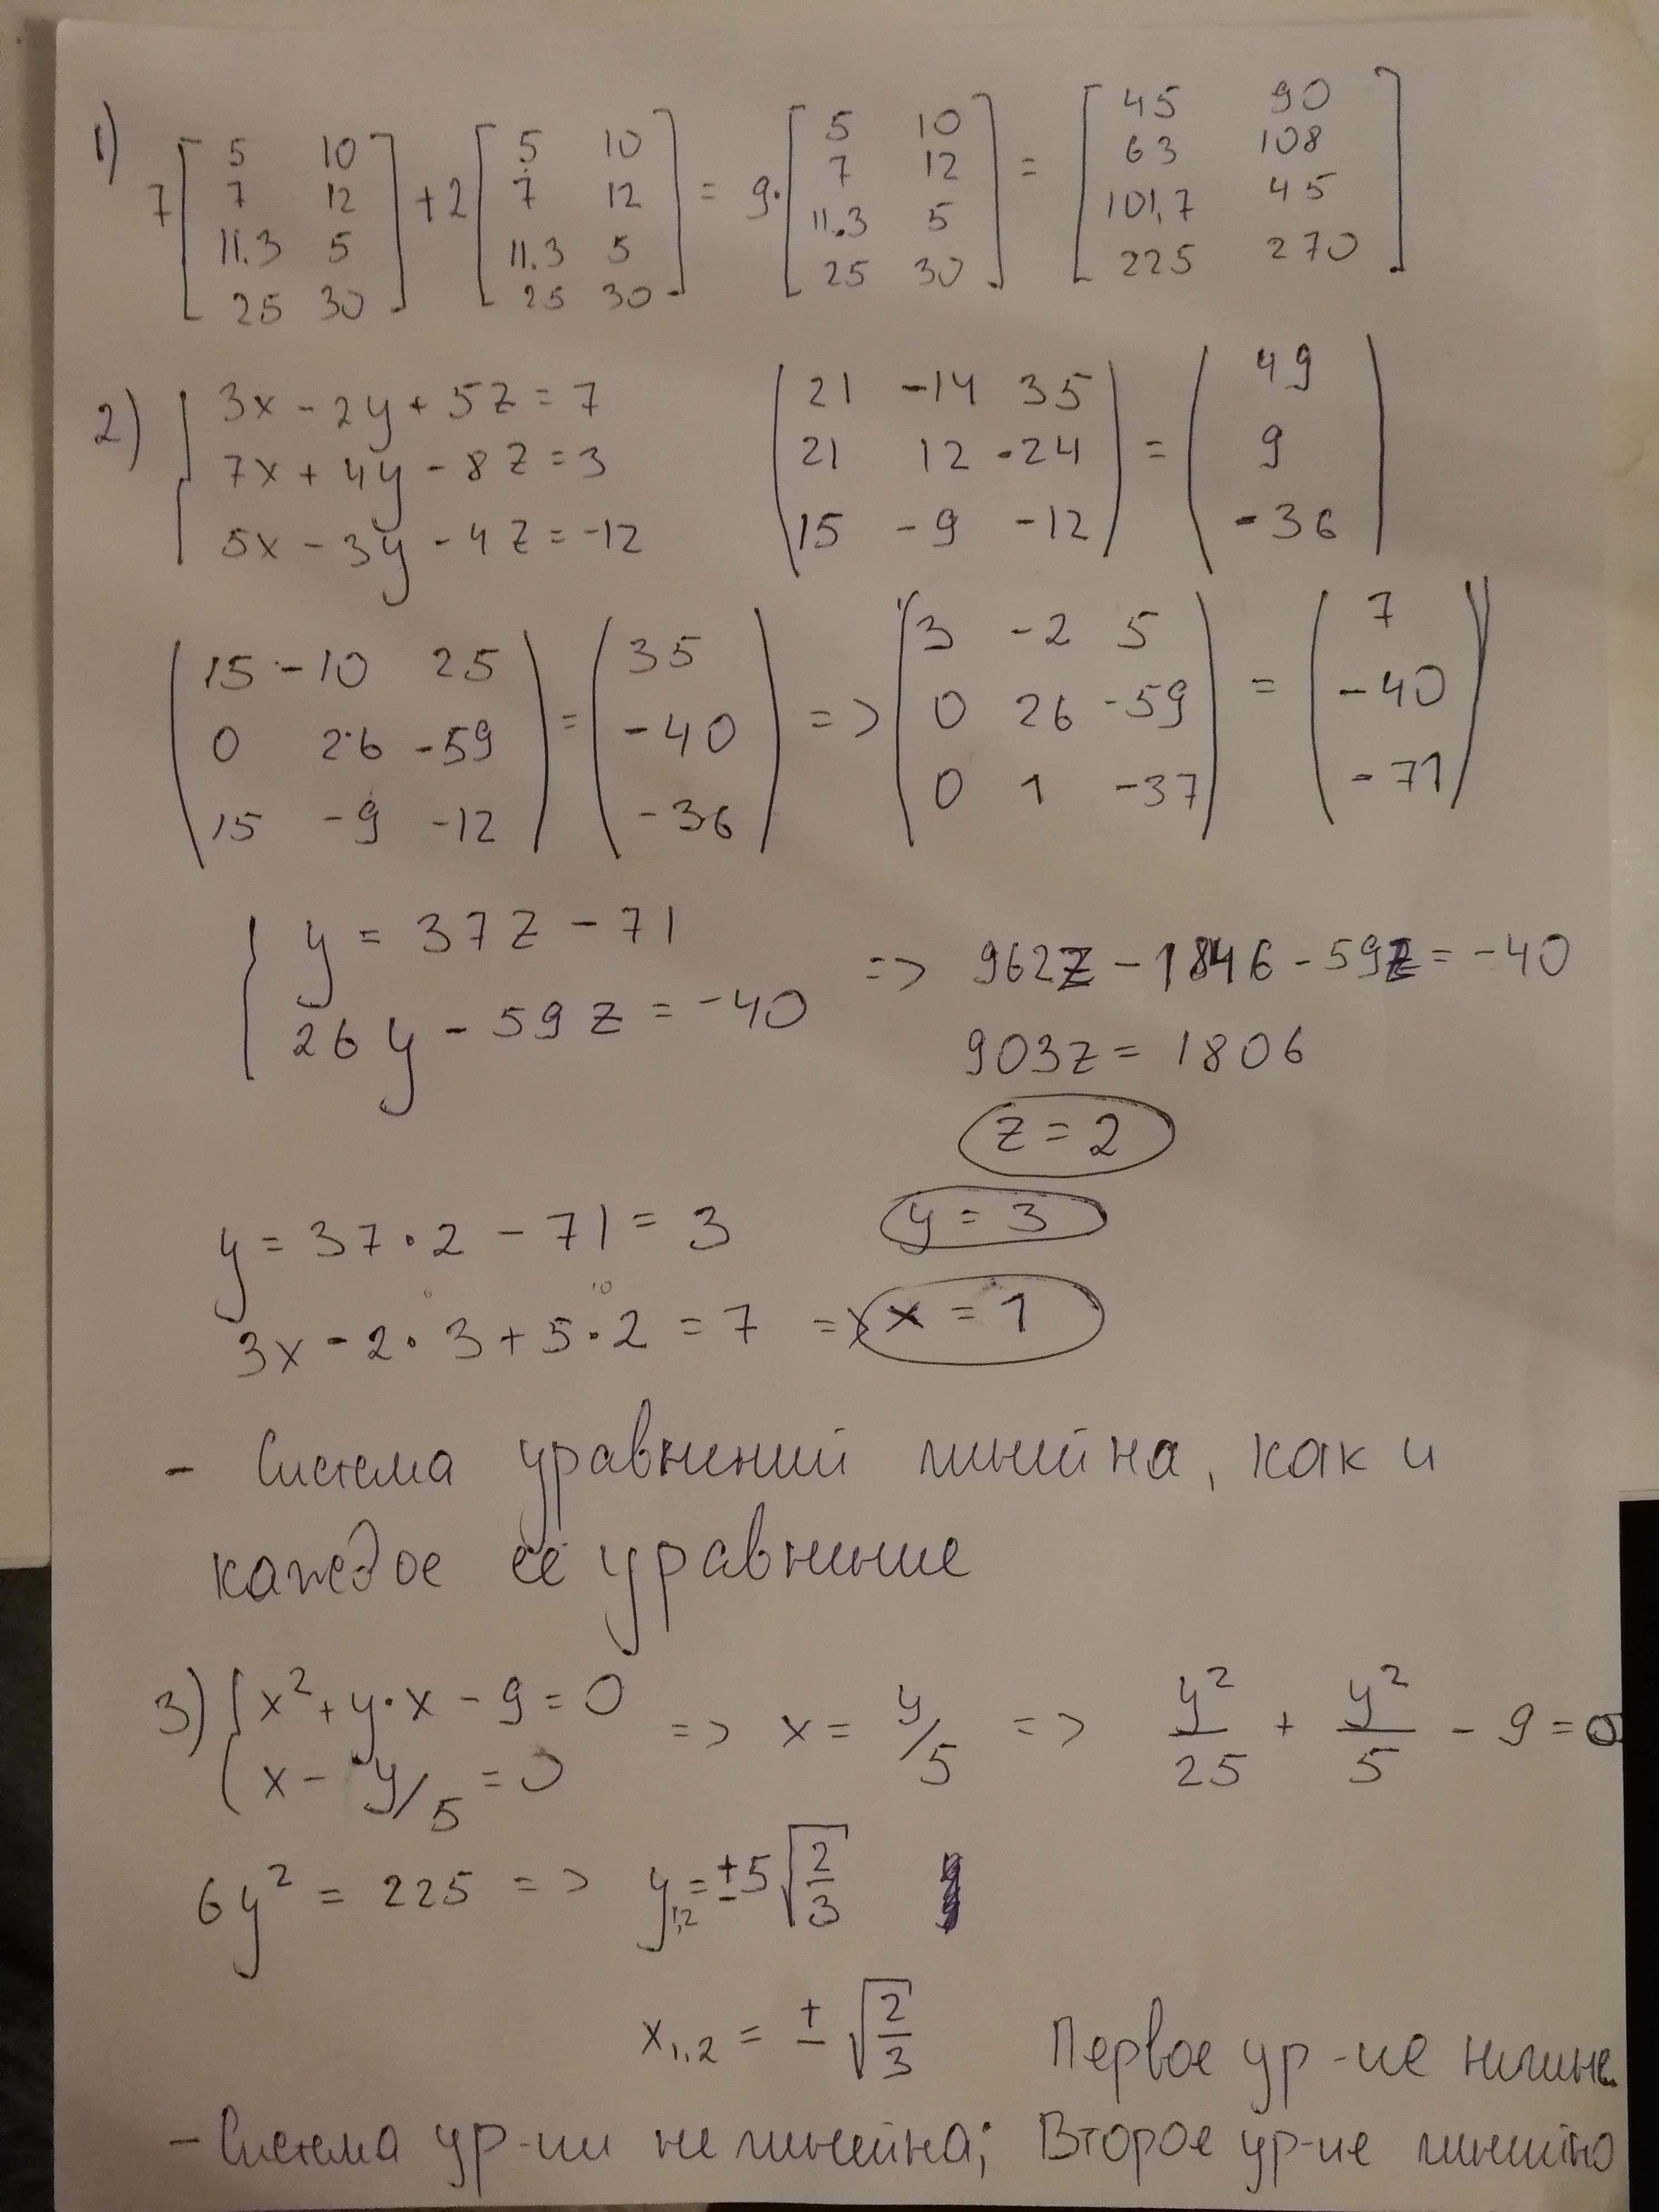 1) 7 [5 10; 7 12; 11.3 5; 25 30] + 2 [5 10; 7 12; 11.3 5; 25 30] = 9 · [5 10; 7 12; 11.3 5; 25 30] = [45 90; 63 108; 101,7 45; 225 270]
2) { 3x - 2y + 5z = 7
7x + 4y - 8z = 3
5x - 3y - 4z = -12
(21 -14 35; 21 12 -24; 15 -9 -12) = (49; 9; -36)
(15 -10 25; 0 26 -59; 15 -9 -12) = (35; -40; -36) => (3 -2 5; 0 26 -59; 0 1 -37) = (7; -40; -71)
{ y = 37z - 71
26y - 59z = -40
=> 962z - 1846 - 59z = -40
903z = 1806
z = 2
y = 37 · 2 - 71 = 3 y = 3
3x - 2 · 3 + 5 · 2 = 7 => x = 1
- Система уравнений линейна, как и
каждое её уравнение
3) { x² + y · x - 9 = 0
x - y/5 = 0
=> x = y/5 => y²/25 + y²/5 - 9 = 0
6y² = 225 => y1,2 = ±5√(2/3)
x1,2 = ±√(2/3) Первое ур-ие
- Система ур-ий не линейна; Второе ур-ие линейно